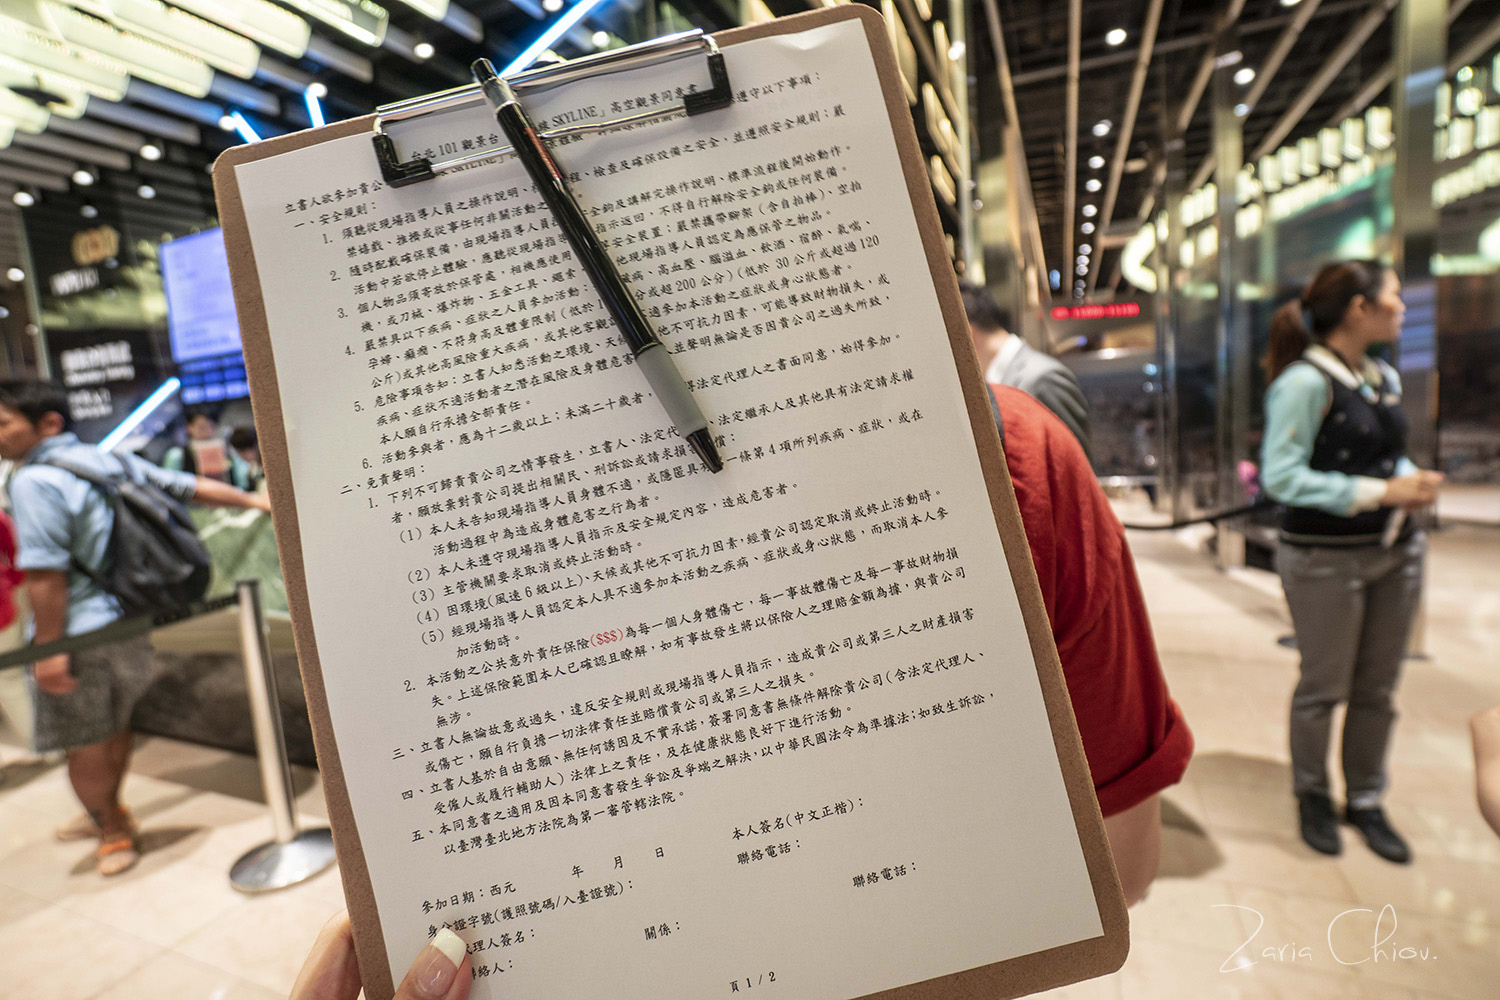 台北 101 觀景台 線 SKYLINE」高空觀景同意書
立書人欲參加貴公 遵守以下事項：
一、安全規則：
1. 須聽從現場指導人員之操作說明、 程、檢查及確保設備之安全，並遵照安全規則；嚴
禁嬉戲、推擠或從事任何非關活動之
2. 隨時配戴確保裝備，由現場指導人員 安全鉤及講解完操作說明、標準流程後開始動作。
活動中若欲停止體驗，應聽從現場指導 指示返回，不得自行解除安全鉤或任何裝備。
3. 個人物品須寄放於保管處，相機應使用 安全裝置；嚴禁攜帶腳架（含自拍棒）、空拍
機、或刀械、爆炸物、五金工具、繩索 他現場指導人員認定為應保管之物品。
4. 嚴禁具以下疾病、症狀之人員參加活動： 臟病、高血壓、腦溢血、飲酒、宿醉、氣喘、
孕婦、癲癇、不符身高及體重限制（低於 1 分或超 200 公分）(低於 30 公斤或超過 120
公斤)或其他高風險重大疾病，或其他客觀認 適參加本活動之症狀或身心狀態者。
5. 危險事項告知：立書人知悉活動之環境、天候 他不可抗力因素，可能導致財物損失，或
疾病、症狀不適活動者之潛在風險及身體危害 並聲明無論是否因貴公司之過失所致，
本人願自行承擔全部責任。
6. 活動參與者，應為十二歲以上；未滿二十歲者， 得法定代理人之書面同意，始得參加。
二、免責聲明：
1. 下列不可歸責貴公司之情事發生，立書人、法定代 、法定繼承人及其他具有法定請求權
者，願放棄對貴公司提出相關民、刑訴訟或請求損害 償：
(1) 本人未告知現場指導人員身體不適，或隱匿具有第一條第 4 項所列疾病、症狀，或在
活動過程中為造成身體危害之行為者。
(2) 本人未遵守現場指導人員指示及安全規定內容，造成危害者。
(3) 主管機關要求取消或終止活動時。
(4) 因環境(風速 6 級以上)、天候或其他不可抗力因素，經貴公司認定取消或終止活動時。
(5) 經現場指導人員認定本人具不適參加本活動之疾病、症狀或身心狀態，而取消本人參
加活動時。
2. 本活動之公共意外責任保險($$$)為每一個人身體傷亡，每一事故體傷亡及每一事故財物損
失。上述保險範圍本人已確認且瞭解，如有事故發生將以保險人之理賠金額為據，與貴公司
無涉。
三、立書人無論故意或過失，違反安全規則或現場指導人員指示，造成貴公司或第三人之財產損害
或傷亡，願自行負擔一切法律責任並賠償貴公司或第三人之損失。
四、立書人基於自由意願、無任何誘因及不實承諾，簽署同意書無條件解除貴公司（含法定代理人、
受僱人或履行輔助人）法律上之責任，及在健康狀態良好下進行活動。
五、本同意書之適用及因本同意書發生爭訟及爭端之解決，以中華民國法令為準據法；如致生訴訟，
以臺灣臺北地方法院為第一審管轄法院。
參加日期：西元 年 月 日 本人簽名(中文正楷)：
身分證字號(護照號碼/入臺證號)： 聯絡電話：
代理人簽名： 關係： 聯絡電話：
聯絡人：
頁 1 / 2
Zaria Chiou.